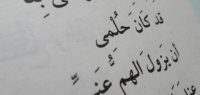 قد كَانَ حُلْمى
أن يَزُولَ الهم عَنِّى